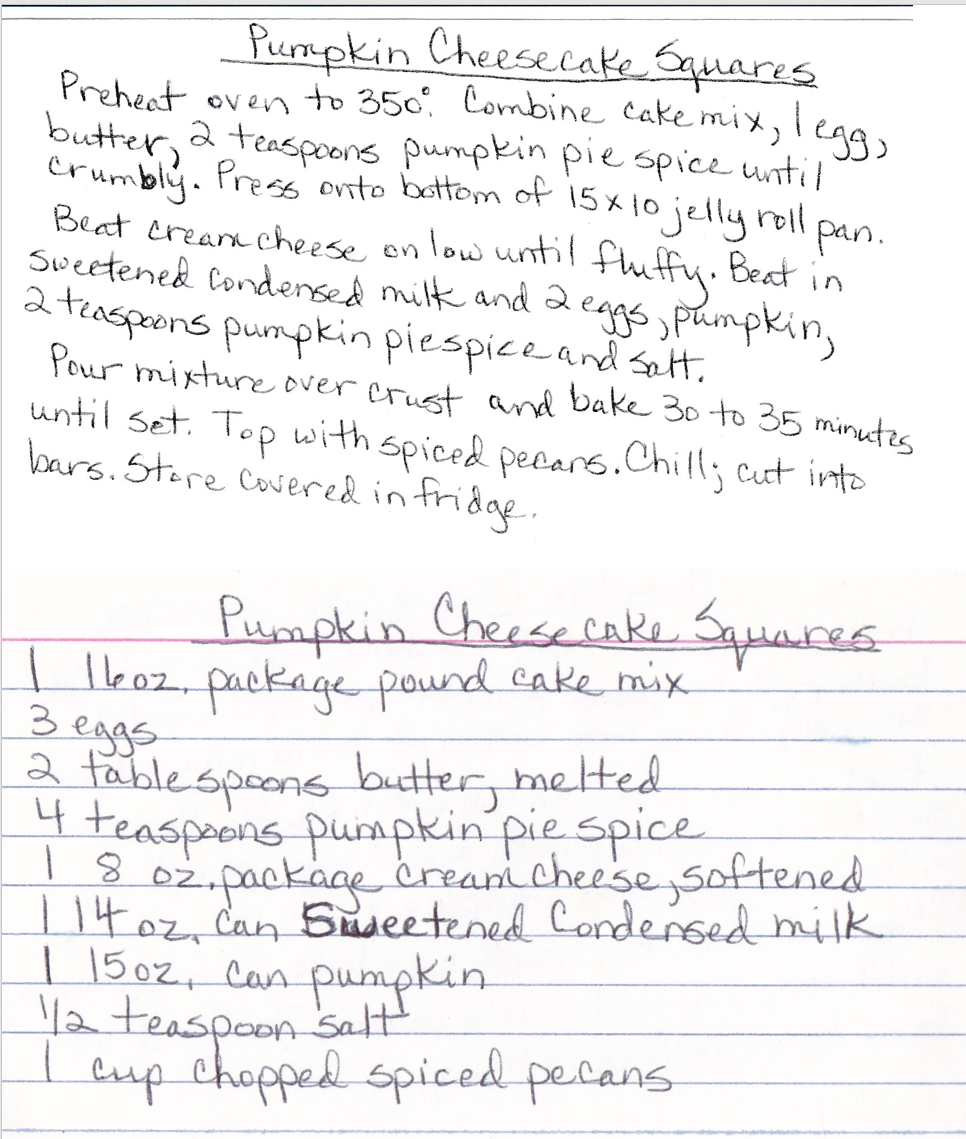 Pumpkin Cheesecake Squares
Preheat oven to 350°. Combine cake mix, 1 egg,
butter, 2 teaspoons pumpkin pie spice until
crumbly. Press onto bottom of 15x10 jelly roll pan.
Beat cream cheese on low until fluffy. Beat in
sweetened condensed milk and 2 eggs, pumpkin,
2 teaspoons pumpkin pie spice and salt.
Pour mixture over crust and bake 30 to 35 minutes
until set. Top with spiced pecans. Chill; cut into
bars. Store covered in fridge.
Pumpkin Cheesecake Squares
1 16 oz. package pound cake mix
3 eggs
2 tablespoons butter, melted
4 teaspoons pumpkin pie spice
1 8 oz. package cream cheese, softened
1 14 oz. can Sweetened Condensed milk
1 15 oz. can pumpkin
1/2 teaspoon salt
1 cup chopped spiced pecans